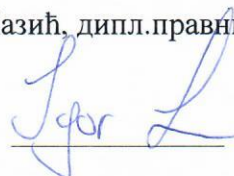 азић, дипл.правни
Igor L